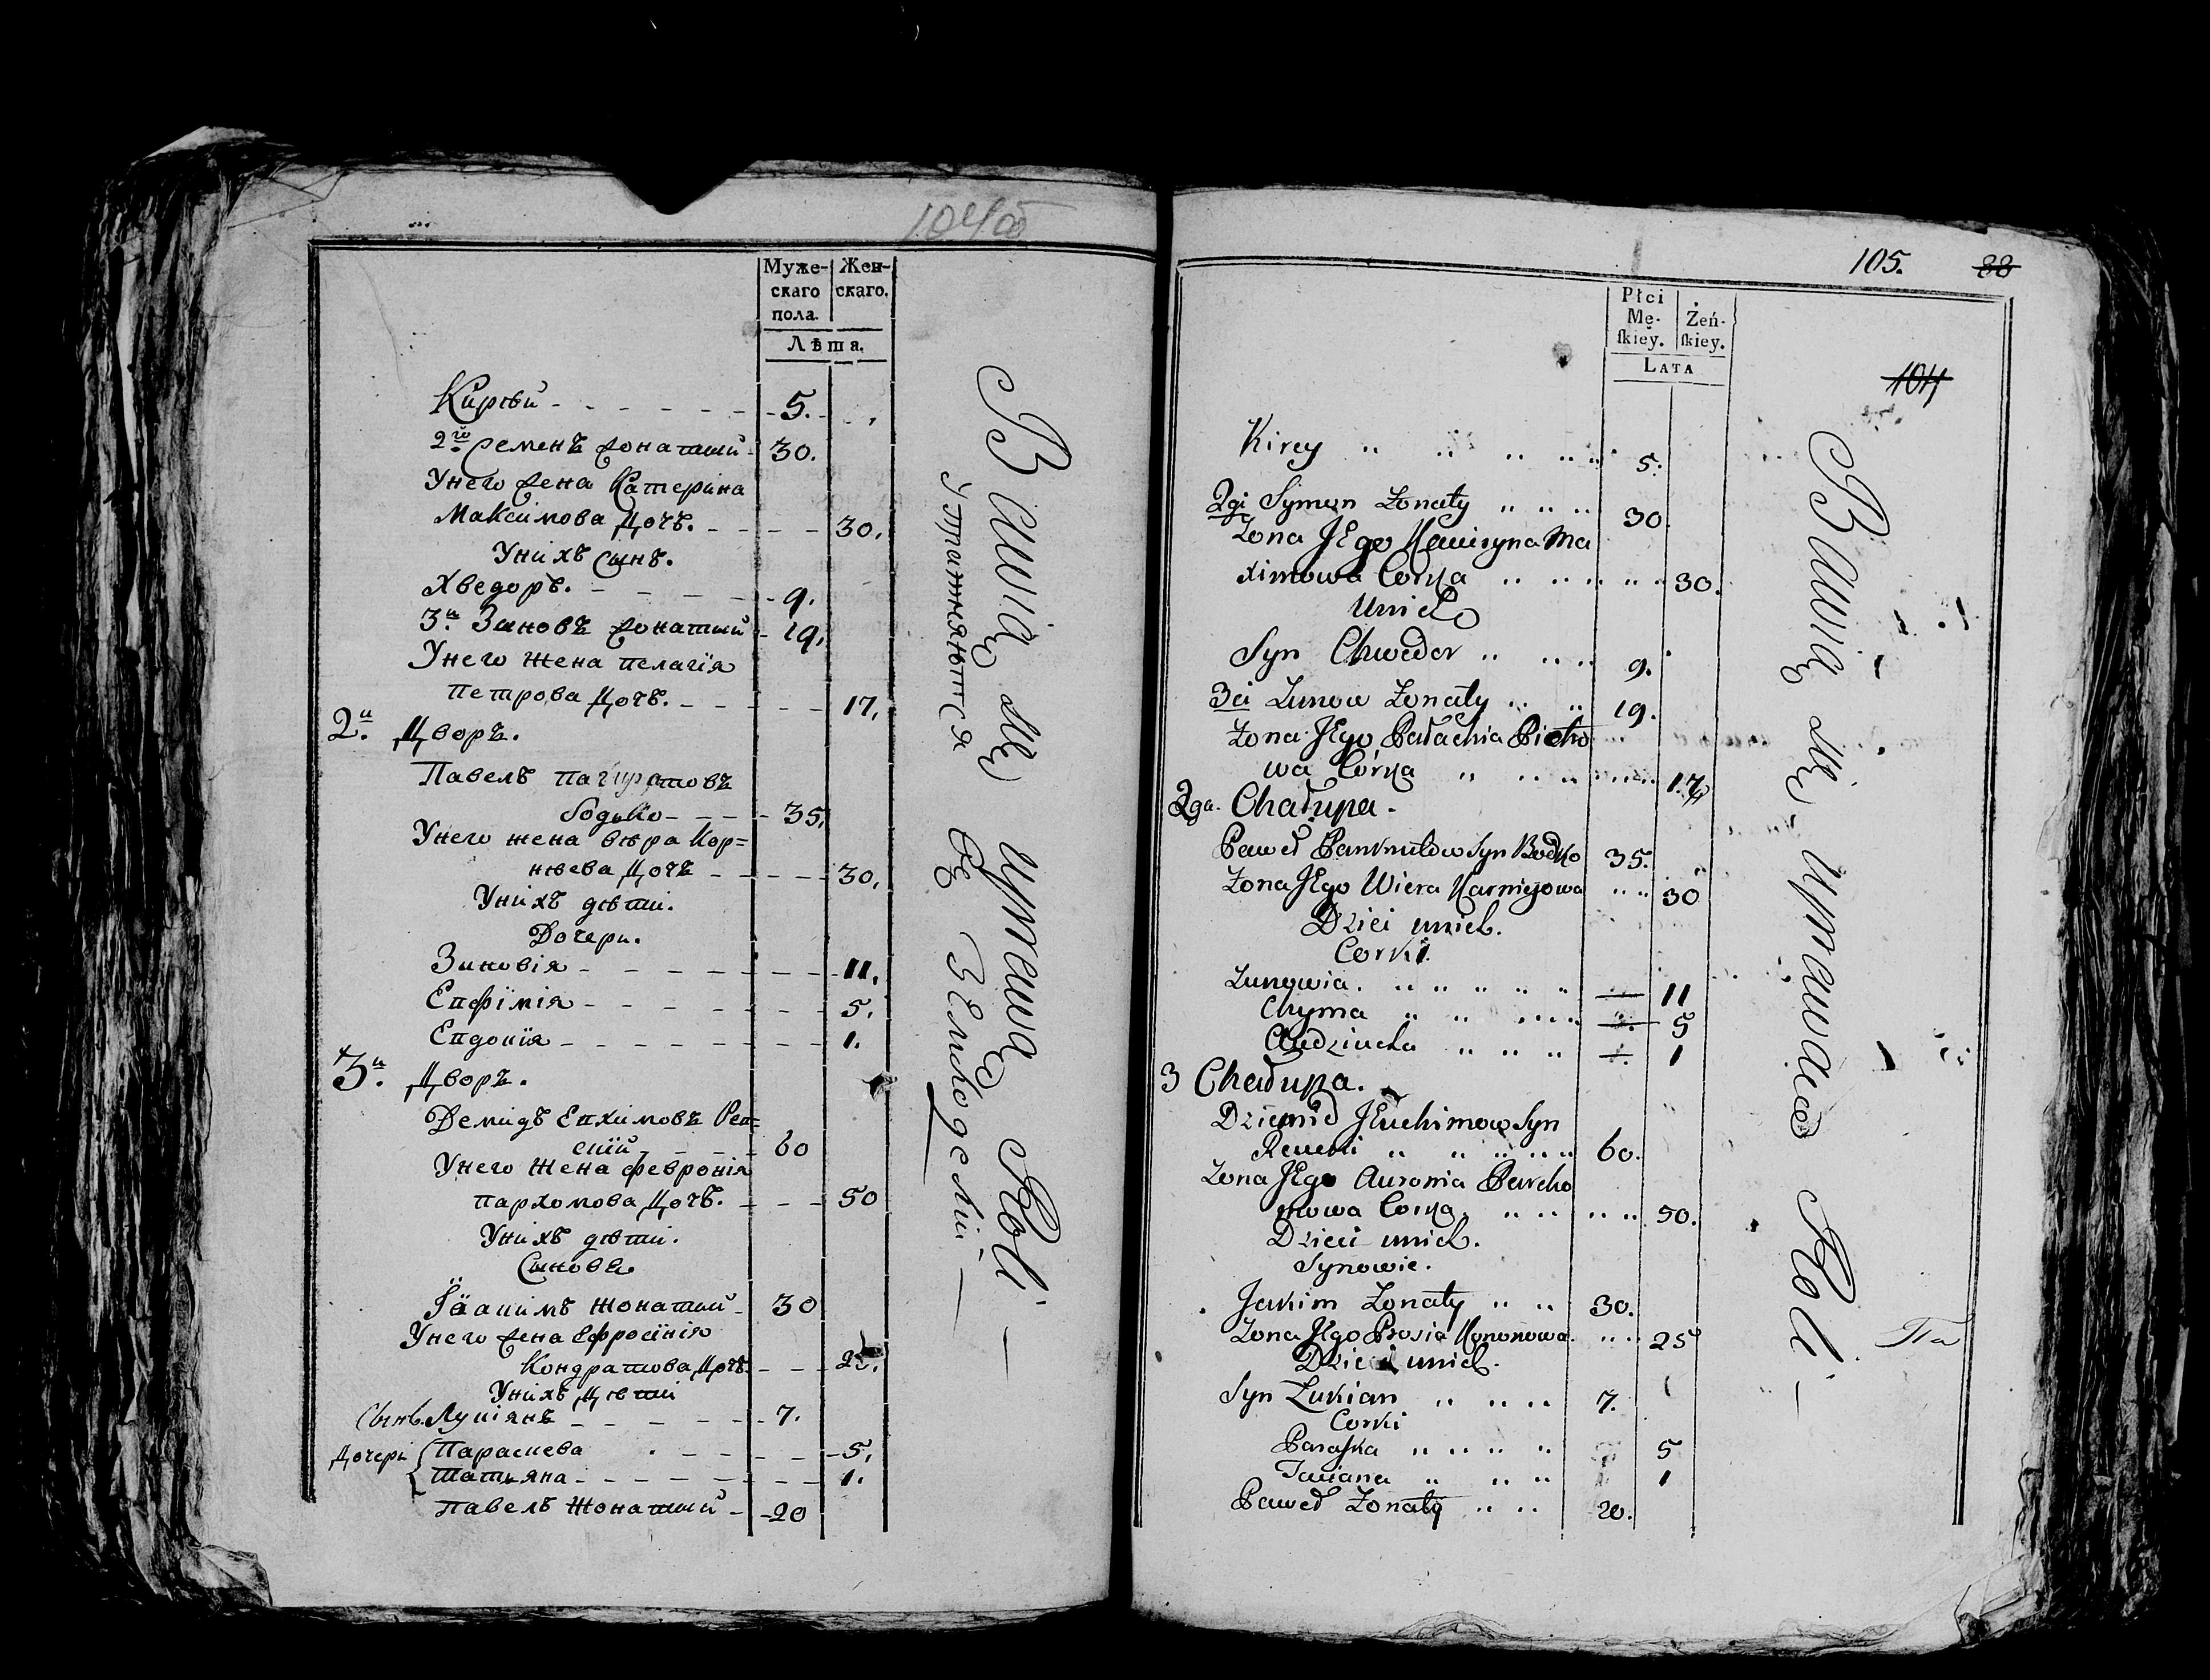 104об
Муже-
скаго
пола.
Жен-
скаго.
Лѣта.
Кирѣй 5.
2й Семенъ жонатый 30.
Унего жена Катерина
Максимова дочь. 30.
Унихъ сынъ.
Хведоръ. 9.
3й Зиновъ жонатый 19.
Унего жена пелагія
петрова дочь. 17.
2й Дворъ.
Павелъ
Бодько 35.
Унего жена вѣра Кор=
нѣева дочь 30.
Унихъ дѣти.
Дочери.
Зиновія 11.
Епфімія 5.
Епдокія 1.
3й Дворъ.
Демидъ Епхимовъ Реп=
скій 60
Унего жена февронія
пархомова дочь. 50
Унихъ дѣти.
Сыновья
Іоакимъ жонатый 30
Унего жена Ефросинія
Кондратова дочь 25.
Унихъ дѣти
Сынъ Лукіянъ 7.
Дочери Параскева 5.
Татьяна 1.
Павелъ жонатый 20
Bawią się uprawą Roli.
Упражняются въ Земледелій
105. 88
104
Płci
Mę-
ſkiey.
Żeń-
ſkiey.
Lata
Kirey 5.
2gi Symon Żonaty 30.
Żona Jego Katirzyna Ma
ximowa Corka 30.
Unich
Syn Chwedor 9.
3ci Zunow Żonaty 19.
Żona Jego Pałachia Pietro
wa Córka 17
2ga. Chałupa.
Paweł Pankratow Syn Bodko 35.
Żona Jego Wiera Karniejowa 30
Dzieci unich.
Corki.
Zunowia 11
Chyma 5
1
3 Chałupa.
Dziemid Jeuchimow Syn
60.
Żona Jego Auronia Parcho
mowa Corka. 50.
Dzieci unich.
Synowie.
Jakim Żonaty 30.
Żona Jego Prosia Kononowa 25
Dzieci unich.
Syn Łukian 7.
Corki
Paraſka 5
Taciana 1
Paweł Żonaty 20.
Bawią się uprawą Roli
Па